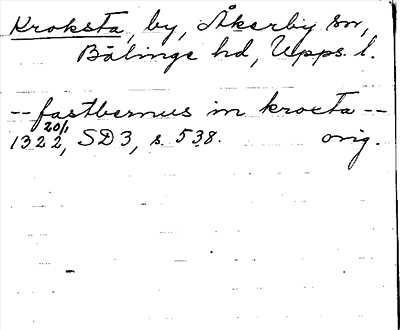 Kroksta, by, Åkerby sn,
Bälinge hd, Upps. l.
-- fastbernus in krocta --
20/1
1322, SD3, s. 538. orig.